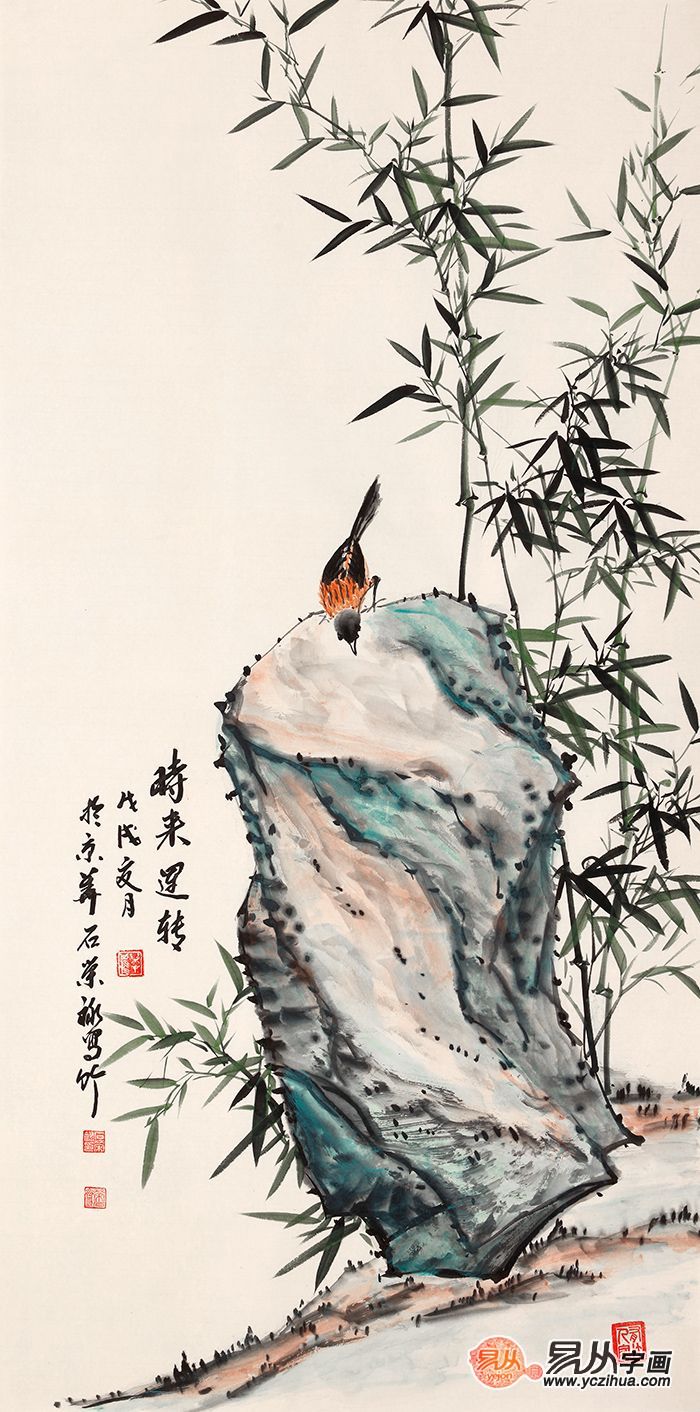 時来運转
戊戌夏月
於京華石荣禄寫竹
易从
易从字画
www.yczihua.com